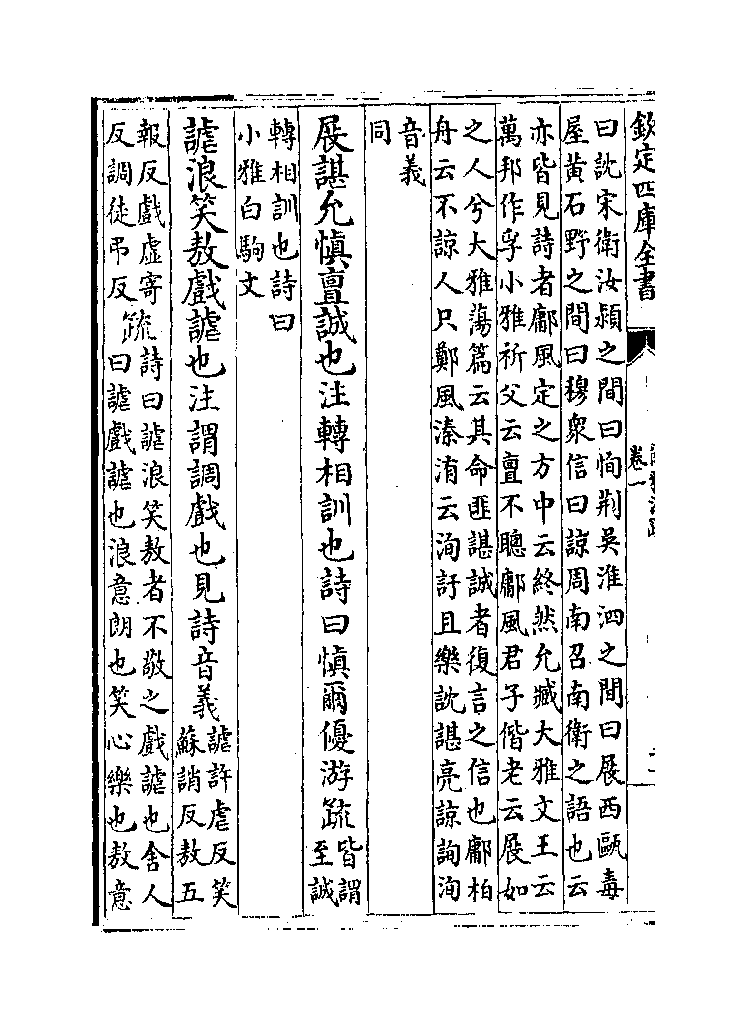 欽定四庫全書
卷一
曰訦宋衛汝潁之間曰恂荆吳淮泗之間曰展西甌毒
屋黄石野之間曰穆衆信曰諒周南召南衛之語也云
亦皆見詩者鄘風定之方中云終然允臧大雅文王云
萬邦作孚小雅祈父云亶不聰鄘風君子偕老云展如
之人兮大雅蕩篇云其命匪諶誠者復言之信也鄘柏
舟云不諒人只鄭風溱洧云洵訏且樂訦諶亮諒詢洵
音義
同
展諶允慎亶誠也注轉相訓也詩曰慎爾優游疏皆謂
至誠
轉相訓也詩曰
小雅白駒文
謔浪笑敖戲謔也注謂調戲也見詩音義謔許虐反笑
蘇誚反敖五
報反戲虛寄
反調徒弔反
疏詩曰謔浪笑敖者不敬之戲謔也舍人
曰謔戲謔也浪意朗也笑心樂也敖意